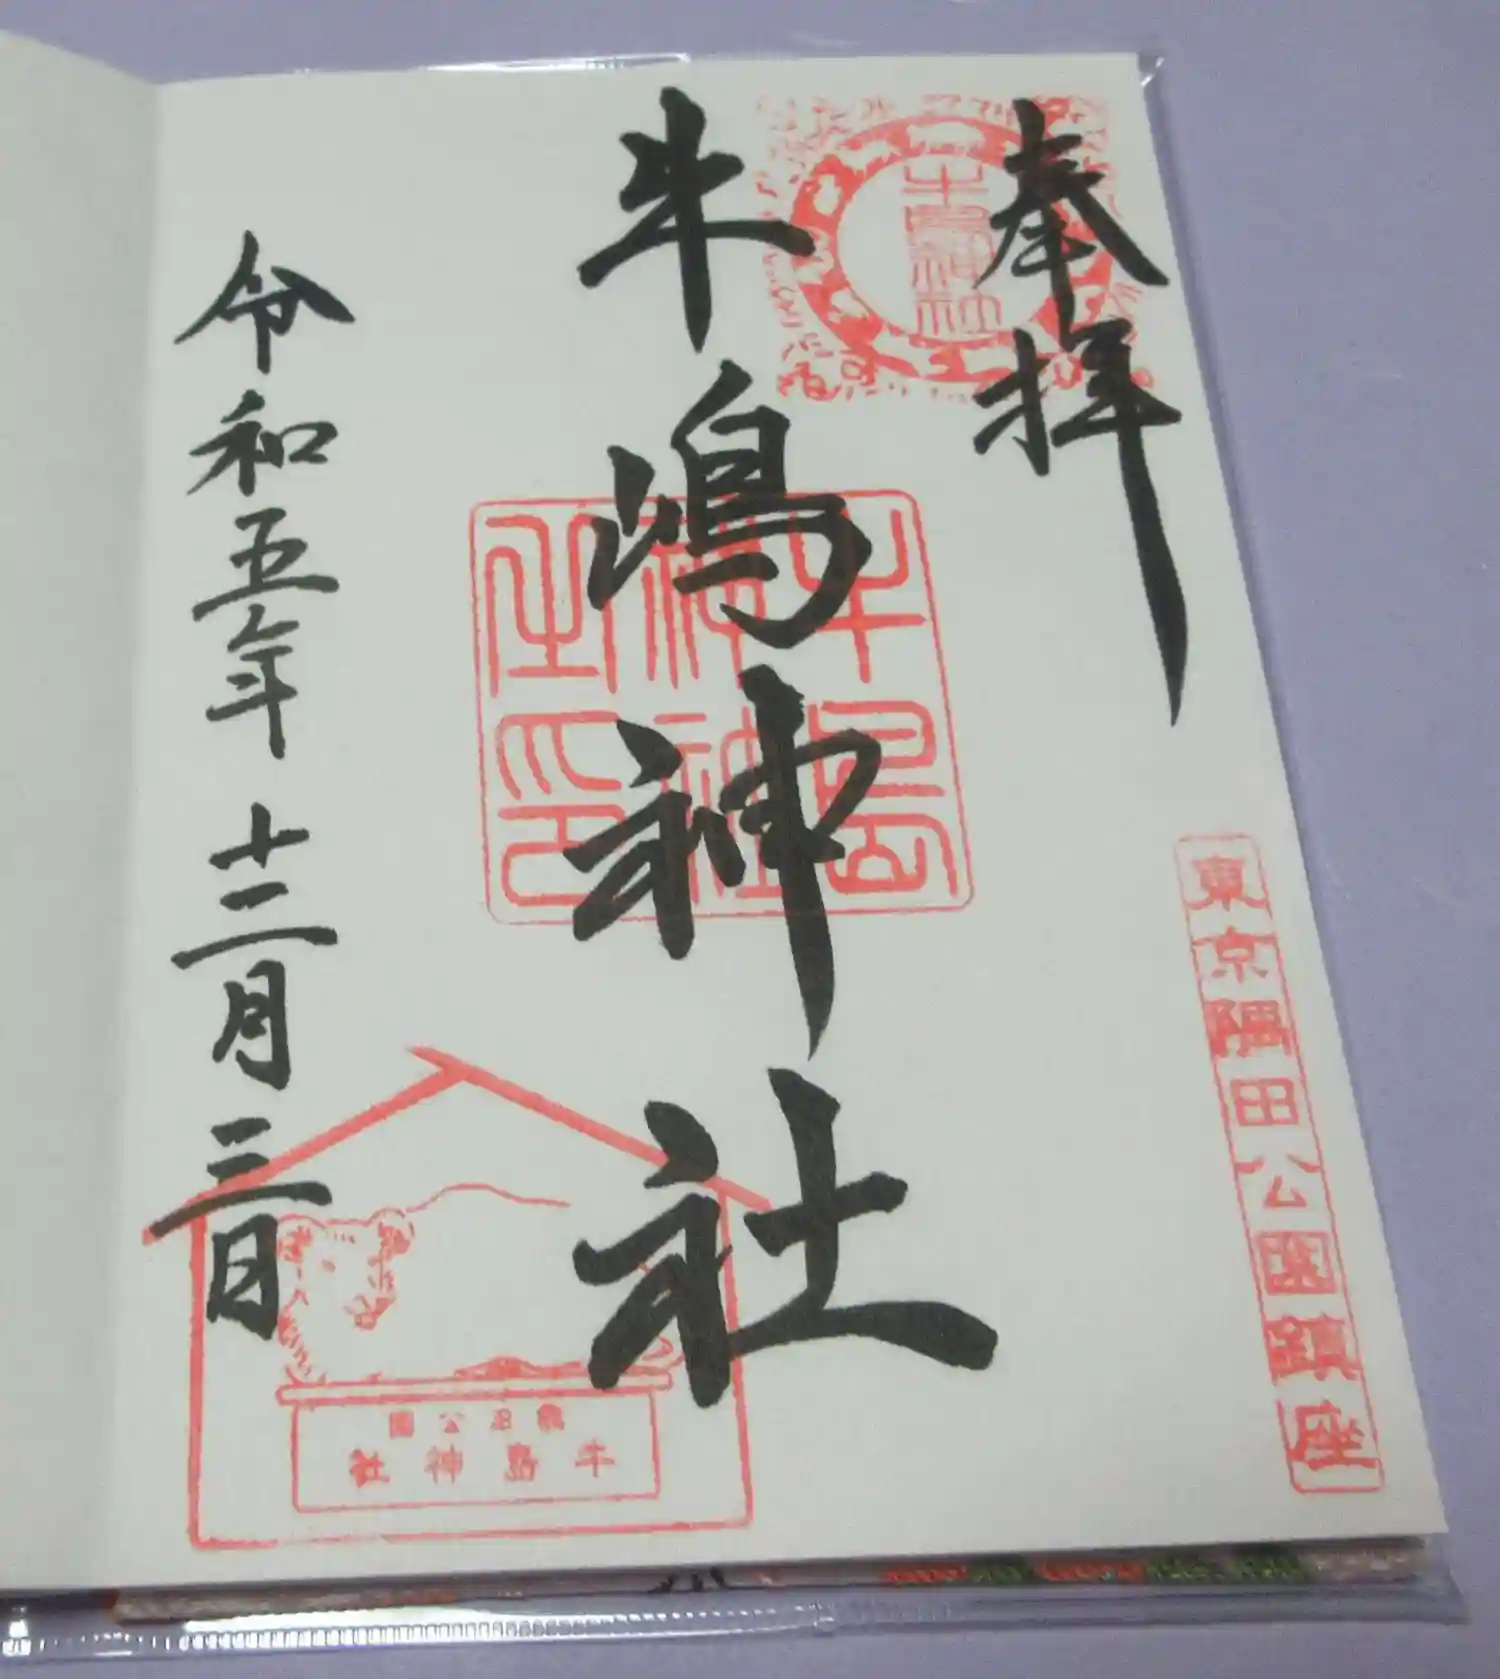 奉拝
牛島神社
東京隅田公園鎮座
牛嶋神社
牛島
神社
之印
令和五年十二月三日
隅田公園
牛島神社